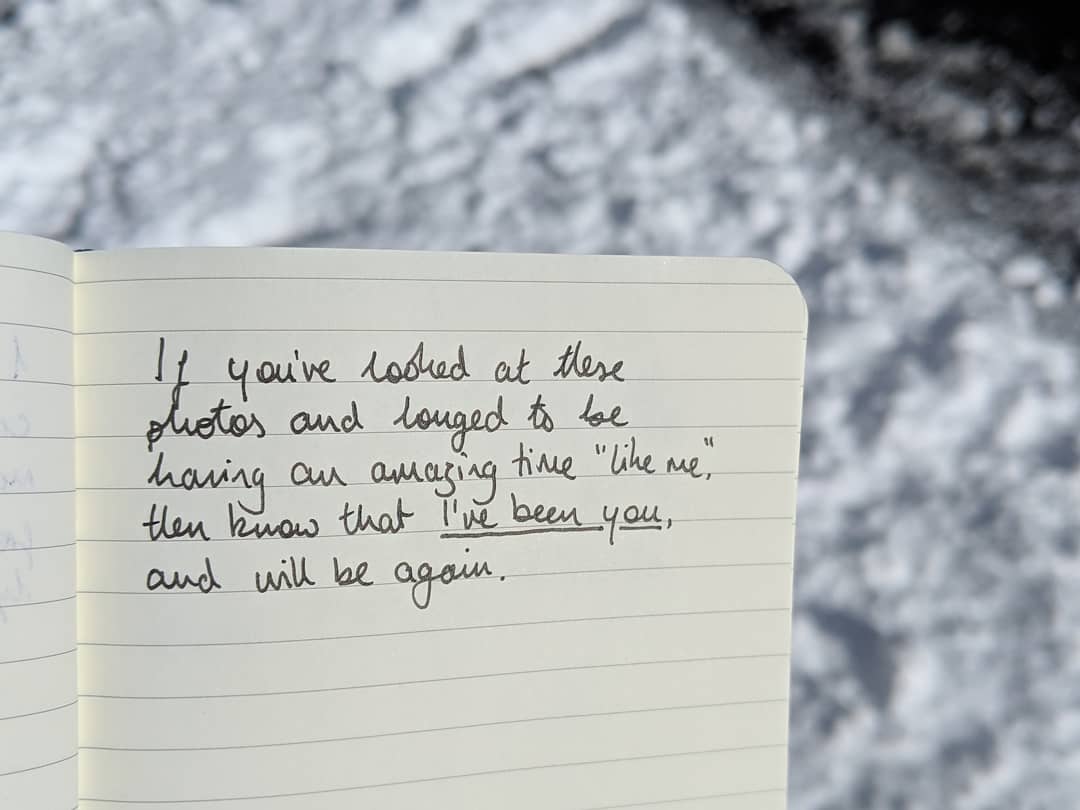 If you've looked at these
photos and longed to be
having an amazing time "like me,"
then know that I've been you,
and will be again.